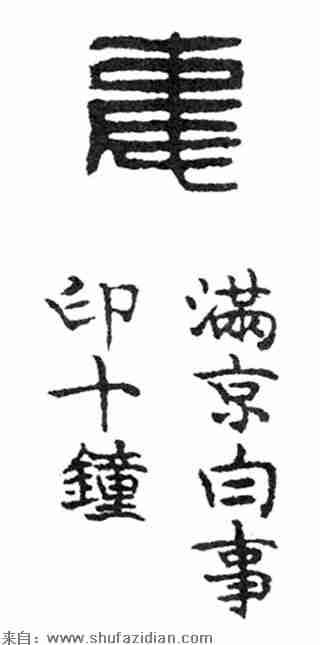 滿京白事
印十鐘
来自：www.shufazidian.com